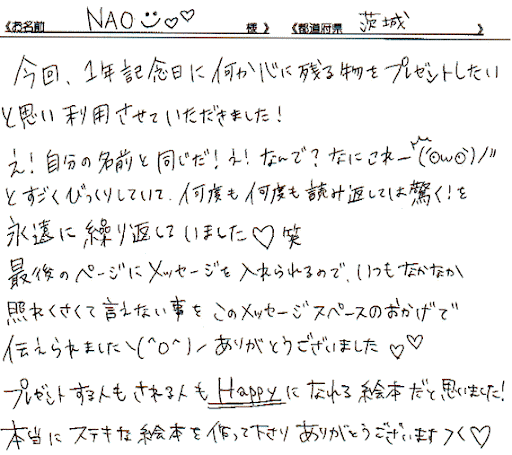 《お名前 NAO☺♡♡ 様 》 《都道府県 茨城 》
今回、1年記念日に何か心に残る物をプレゼントしたい
と思い利用させていただきました!
え!自分の名前と同じだ!え!なんで?なにこれー(ʘωʘ)ノ〃
とすごくびっくりしていて、何度も何度も読み返しては驚く!を
永遠に繰り返していました♡笑
最後のページにメッセージを入れられるので、いつもなかなか
照れくさくて言えない事をこのメッセージスペースのおかげで
伝えられましたヽ(^o^)ノありがとうございました♡♡
プレゼントする人もされる人もHappyになれる絵本だと思いました!
本当にステキな絵本を作って下さりありがとうございますつく♡